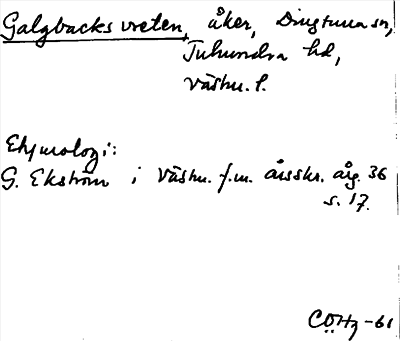 Galgbacksvreten, åker, Dingtuna sn,
Tuhundra hd,
Västm. l.
Etymologi:
G. Ekström i Västm. f.m. årsskr. årg. 36
s. 17.
CÖHg -61